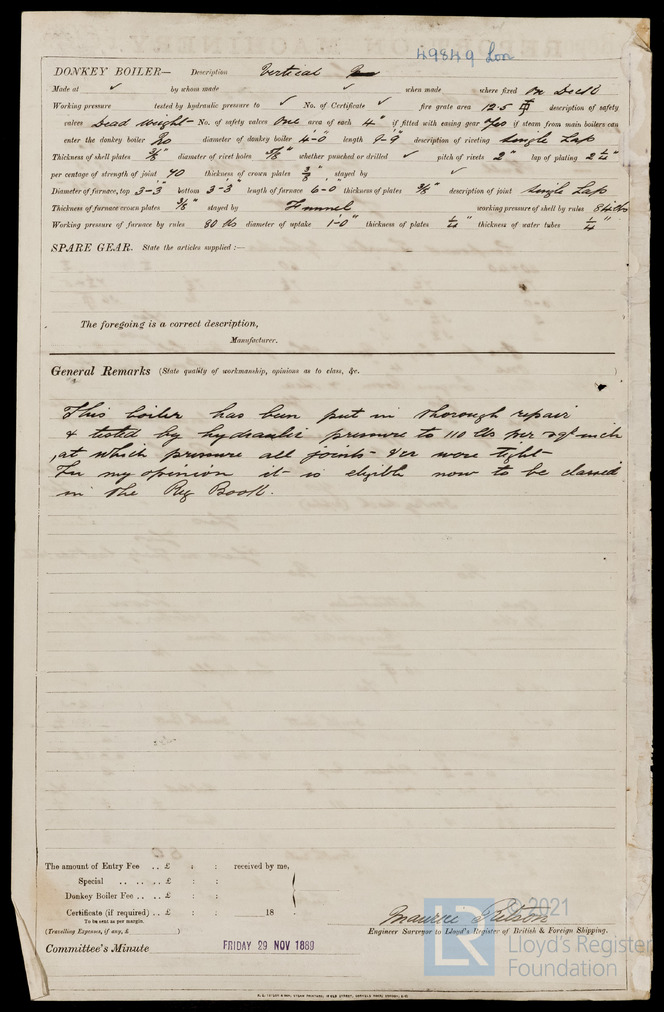 49849 Lon
DONKEY BOILER— Description Vertical
Made at ✓ by whom made ✓ when made where fixed On Deck
Working pressure tested by hydraulic pressure to ✓ No. of Certificate ✓ fire grate area 12·5 description of safety
valves Dead Weight No. of safety valves One area of each 4" if fitted with easing gear if steam from main boilers can
enter the donkey boiler No diameter of donkey boiler 4'-0" length 9'-9" description of riveting Single Lap
Thickness of shell plates 3/8" diameter of rivet holes whether punched or drilled ✓ pitch of rivets 2" lap of plating 2 1/4"
per centage of strength of joint 40 thickness of crown plates 3/8" stayed by ✓
Diameter of furnace, top 3'-3" bottom 3'-3" length of furnace 6'-0" thickness of plates 3/8" description of joint Single Lap
Thickness of furnace crown plates 3/8" stayed by Funnel working pressure of shell by rules 84 lbs
Working pressure of furnace by rules 80 lbs diameter of uptake 1'-0" thickness of plates 1/4" thickness of water tubes 1/4"
SPARE GEAR. State the articles supplied :—
The foregoing is a correct description,
Manufacturer.
General Remarks (State quality of workmanship, opinions as to class, &c. )
This boiler has been put in thorough repair
& tested by hydraulic pressure to 110 lbs per sqr inch
, at which pressure all joints &cr were tight—
In my opinion it is eligible now to be classed
in the Reg Book.
The amount of Entry Fee .. £ : : received by me,
Special .. .. .. £ : :
Donkey Boiler Fee .. .. £ : :
Certificate (if required) .. £ : : 18 .
To be sent as per margin.
(Travelling Expenses, if any, £ )
Maurice Ritson
Engineer Surveyor to Lloyd's Register of British & Foreign Shipping.
Committee's Minute FRIDAY 29 NOV 1889
LR
© 2021
Lloyd's Register
Foundation